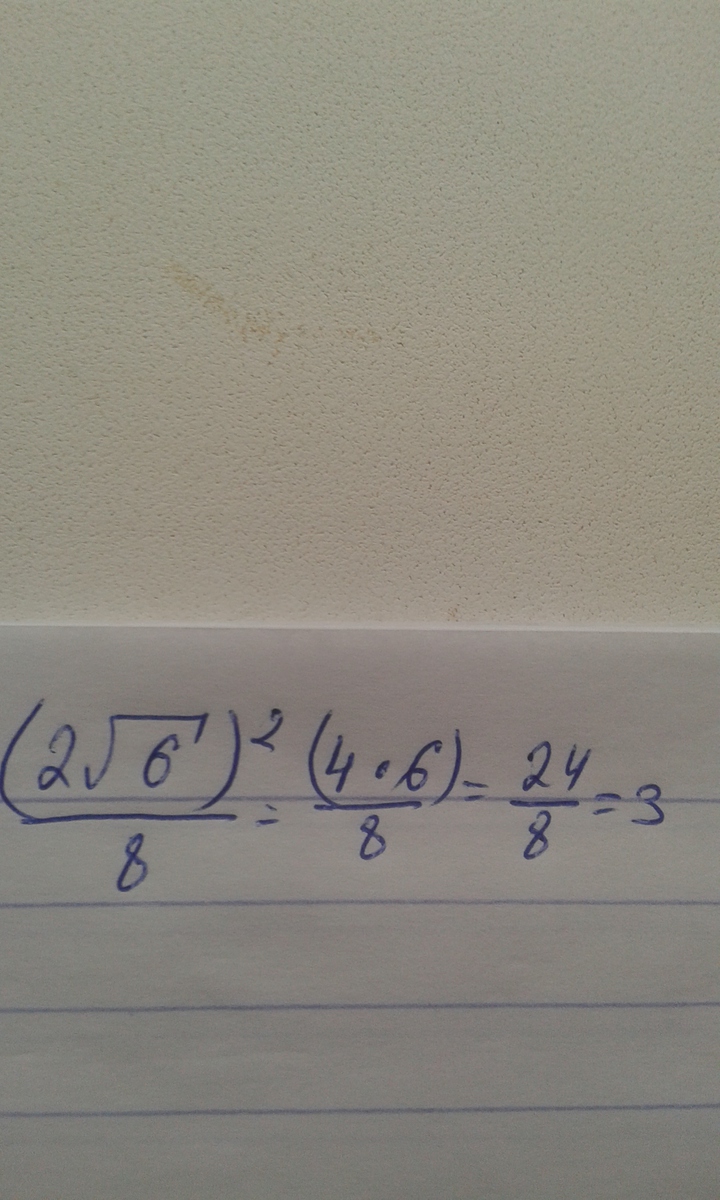 (2√6)²/8 = (4·6)/8 = 24/8 = 3